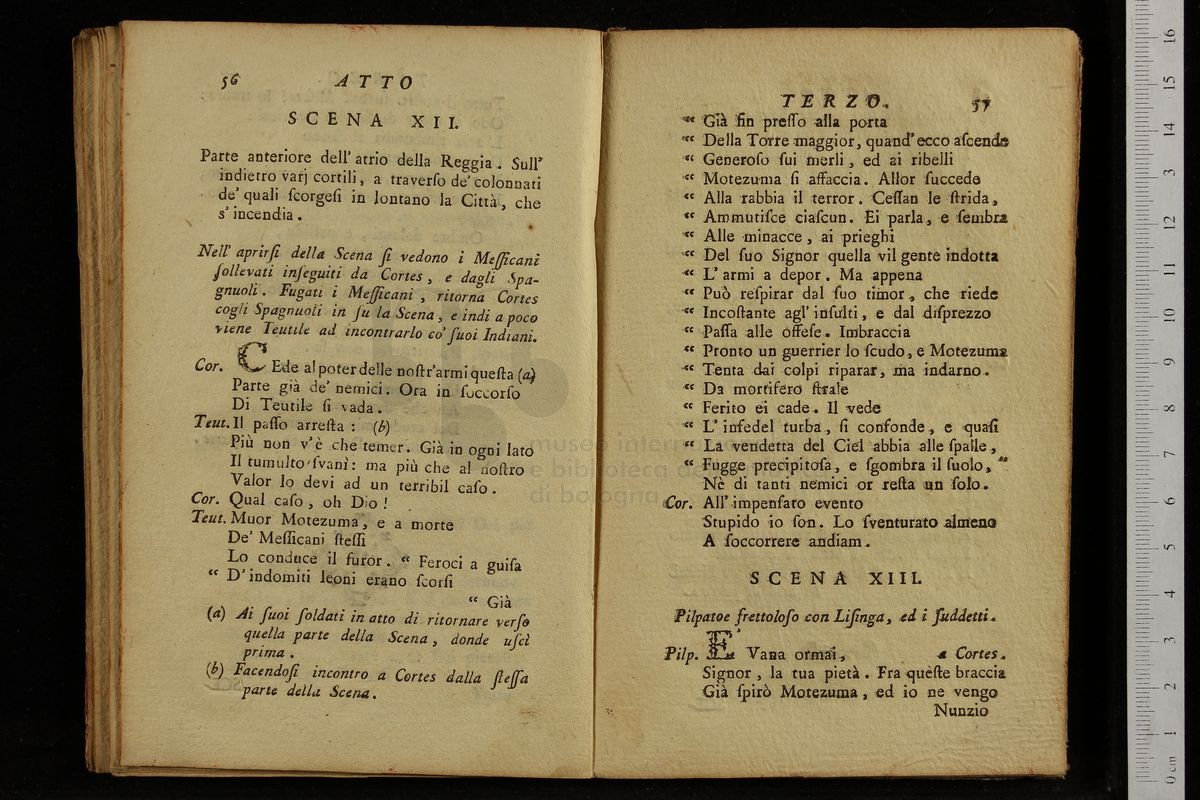 56 ATTO
SCENA XII.
Parte anteriore dell' atrio della Reggia. Sull'
indietro varj cortili, a traverſo de' colonnati
de' quali ſcorgeſi in lontano la Città, che
s' incendia.
Nell' aprirſi della Scena ſi vedono i Meſſicani
ſollevati inſeguiti da Cortes, e dagli Spa-
gnuoli. Fugati i Meſſicani, ritorna Cortes
cogli Spagnuoli in ſu la Scena, e indi a poco
viene Teutile ad incontrarlo co' ſuoi Indiani.
Cor. CEde al poter delle noſtr'armi queſta (a)
Parte già de' nemici. Ora in ſoccorſo
Di Teutile ſi vada.
Teut. Il paſſo arreſta: (b)
Più non v'è che temer. Già in ogni lato
Il tumulto ſvanì: ma più che al noſtro
Valor lo devi ad un terribil caſo.
Cor. Qual caſo, oh Dio!
Teut. Muor Motezuma, e a morte
De' Meſſicani ſteſſi
Lo conduce il furor. “ Feroci a guiſa
“ D' indomiti leoni erano ſcorſi
“ Già
(a) Ai ſuoi ſoldati in atto di ritornare verſo
quella parte della Scena, donde uſcì
prima.
(b) Facendoſi incontro a Cortes dalla ſteſſa
parte della Scena.
TERZO. 57
“ Già fin preſſo alla porta
“ Della Torre maggior, quand' ecco aſcende
“ Generoſo ſui merli, ed ai ribelli
“ Motezuma ſi affaccia. Allor ſuccede
“ Alla rabbia il terror. Ceſſan le ſtrida,
“ Ammutiſce ciaſcun. Ei parla, e ſembra
“ Alle minacce, ai prieghi
“ Del ſuo Signor quella vil gente indotta
“ L' armi a depor. Ma appena
“ Può reſpirar dal ſuo timor, che riede
“ Incoſtante agl' inſulti, e dal diſprezzo
“ Paſſa alle offeſe. Imbraccia
“ Pronto un guerrier lo ſcudo, e Motezuma
“ Tenta dai colpi riparar, ma indarno.
“ Da mortifero ſtrale
“ Ferito ei cade. Il vede
“ L' infedel turba, ſi confonde, e quaſi
“ La vendetta del Ciel abbia alle ſpalle,
“ Fugge precipitoſa, e ſgombra il ſuolo, “
Nè di tanti nemici or reſta un ſolo.
Cor. All' impenſato evento
Stupido io ſon. Lo ſventurato almeno
A ſoccorrere andiam.
SCENA XIII.
Pilpatoe frettoloſo con Liſinga, ed i ſuddetti.
Pilp. E' Vana ormai, a Cortes.
Signor, la tua pietà. Fra queſte braccia
Già ſpirò Motezuma, ed io ne vengo
Nunzio